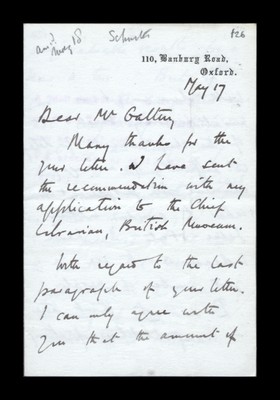 ansd
May 18
Schuster
826
110, Banbury Road,
Oxford.
May 17
Dear Mr Gattery
Many thanks for the
your letter. I have sent
the recommendation with my
application to the Chief
Librarian, British Museum.
With regard to the last
paragraph of your letter.
I can only agree with
you that the amount of